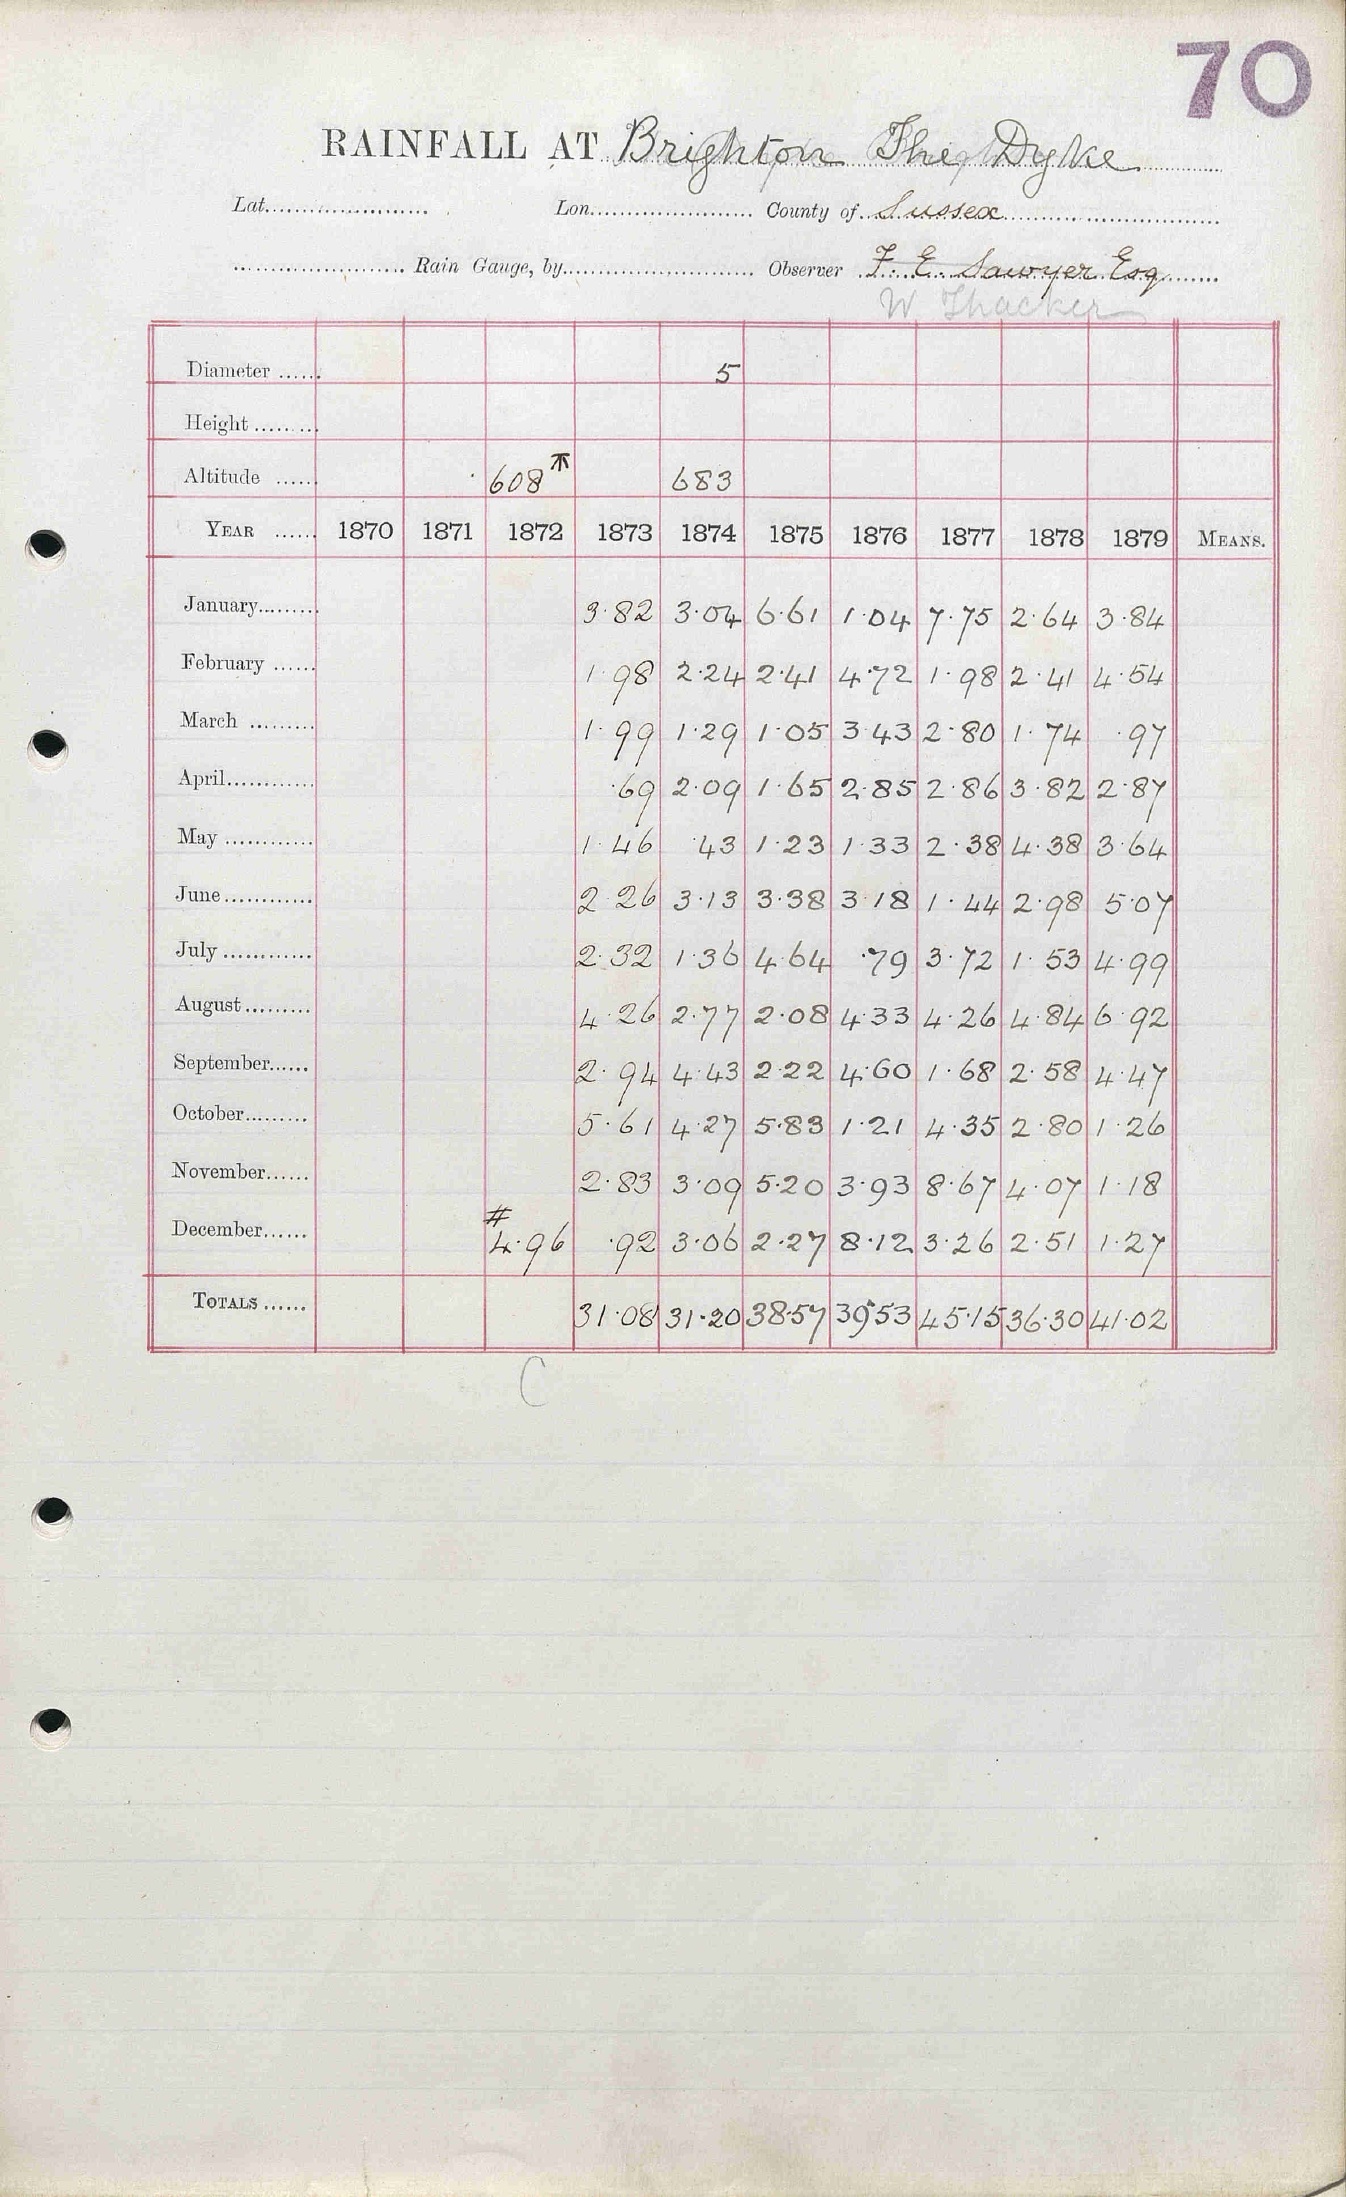 70
RAINFALL AT Brighton The Dyke
Lat. Lon. County of Sussex
Rain Gauge, by Observer F. E. Sawyer Esq
W Thacker
Diameter 5
Height
Altitude 608 683
YEAR 1870 1871 1872 1873 1874 1875 1876 1877 1878 1879 MEANS.
January 3.82 3.04 6.61 1.04 7.75 2.64 3.84
February 1.98 2.24 2.41 4.72 1.98 2.41 4.54
March 1.99 1.29 1.05 3.43 2.80 1.74 .97
April .69 2.09 1.65 2.85 2.86 3.82 2.87
May 1.46 .43 1.23 1.33 2.38 4.38 3.64
June 2.26 3.13 3.38 3.18 1.44 2.98 5.07
July 2.32 1.36 4.64 .79 3.72 1.53 4.99
August 4.26 2.77 2.08 4.33 4.26 4.84 6.92
September 2.94 4.43 2.22 4.60 1.68 2.58 4.47
October 5.61 4.27 5.83 1.21 4.35 2.80 1.26
November 2.83 3.09 5.20 3.93 8.67 4.07 1.18
December # 4.96 .92 3.06 2.27 8.12 3.26 2.51 1.27
TOTALS 31.08 31.20 38.57 39.53 45.15 36.30 41.02
C